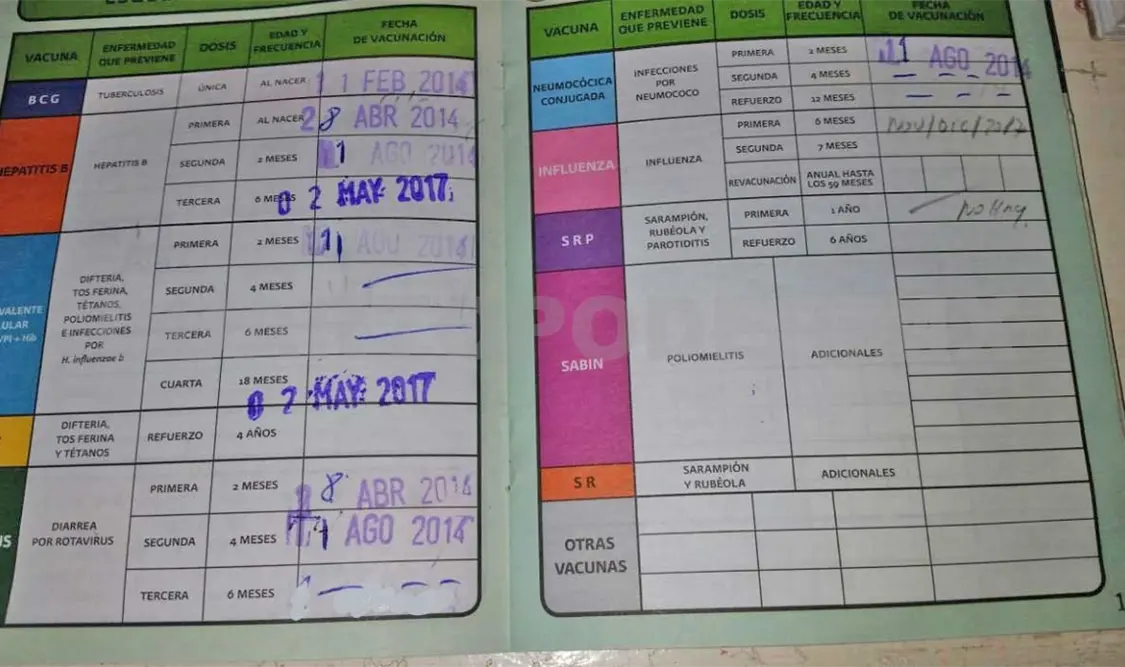 VACUNA ENFERMEDAD QUE PREVIENE DOSIS EDAD Y FRECUENCIA FECHA DE VACUNACIÓN
BCG TUBERCULOSIS ÚNICA AL NACER 11 FEB 2014
HEPATITIS B HEPATITIS B
PRIMERA AL NACER 28 ABR 2014
SEGUNDA 2 MESES 11 AGO 2014
TERCERA 6 MESES 02 MAY 2017
VALENTE
ULAR
VPI + Hib
DIFTERIA,
TOS FERINA,
TÉTANOS,
POLIOMIELITIS
E INFECCIONES
POR
H. influenzae b
PRIMERA 2 MESES 11 AGO 2014
SEGUNDA 4 MESES
TERCERA 6 MESES
CUARTA 18 MESES 02 MAY 2017
DIFTERIA,
TOS FERINA
Y TÉTANOS
REFUERZO 4 AÑOS
US
DIARREA
POR ROTAVIRUS
PRIMERA 2 MESES 28 ABR 2014
SEGUNDA 4 MESES 11 AGO 2014
TERCERA 6 MESES
VACUNA ENFERMEDAD QUE PREVIENE DOSIS EDAD Y FRECUENCIA FECHA DE VACUNACIÓN
NEUMOCÓCICA
CONJUGADA
INFECCIONES
POR
NEUMOCOCO
PRIMERA 2 MESES 11 AGO 2014
SEGUNDA 4 MESES
REFUERZO 12 MESES
INFLUENZA INFLUENZA
PRIMERA 6 MESES Nov/Dic/2017
SEGUNDA 7 MESES
REVACUNACIÓN ANUAL HASTA LOS 59 MESES
SRP
SARAMPIÓN,
RUBÉOLA Y
PAROTIDITIS
PRIMERA 1 AÑO No Hay
REFUERZO 6 AÑOS
SABIN POLIOMIELITIS ADICIONALES
SR SARAMPIÓN Y RUBÉOLA ADICIONALES
OTRAS
VACUNAS
1